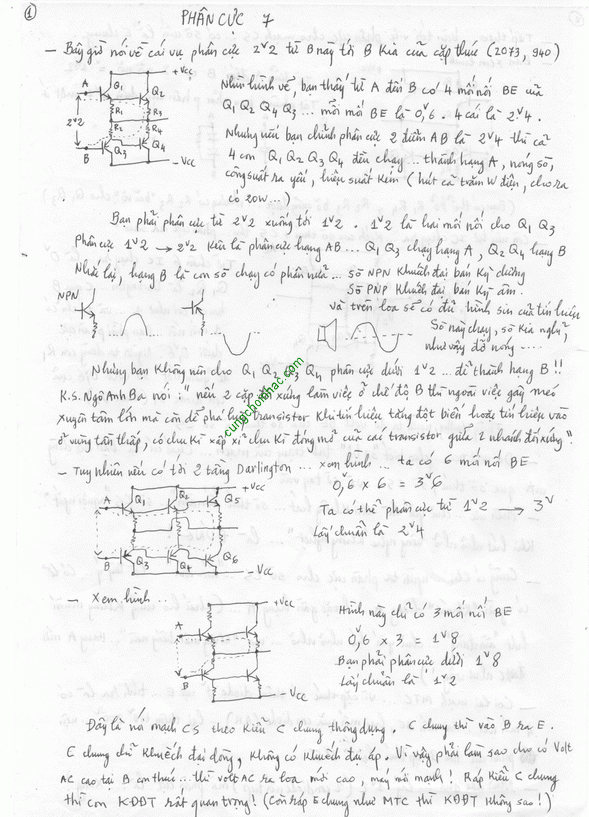 ①
PHÂN CỰC 7
- Bây giờ nói về cái vụ phân cực 2ᵛ2 từ B này tới B kia của cặp thúc (2073, 940)
+Vcc
A
Q1
Q2
R1
R3
2ᵛ2
R2
R4
Q3
Q4
B
-Vcc
Nhìn hình vẽ, bạn thấy từ A đến B có 4 mối nối BE của
Q1 Q2 Q4 Q3 ... mỗi mối BE là 0ᵛ6. 4 cái là 2ᵛ4.
Nhưng nếu bạn chỉnh phân cực 2 điểm AB là 2ᵛ4 thì cả
4 con Q1 Q2 Q3 Q4 đều chạy ... thành hạng A, nóng sò,
công suất ra yếu, hiệu suất kém (hút cả trăm W điện, cho ra
có 20W...)
Bạn phải phân cực từ 2ᵛ2 xuống tới 1ᵛ2. 1ᵛ2 là hai mối nối cho Q1 Q3
Phân cực 1ᵛ2 → 2ᵛ2 kêu là phân cực hạng AB ... Q1 Q3 chạy hạng A, Q2 Q4 hạng B
Nhắc lại, hạng B là con sò chạy có phân nửa ... sò NPN khuếch đại bán kỳ dương
sò PNP khuếch đại bán kỳ âm.
NPN
và trên loa sẽ có đủ hình sin của tín hiệu
Sò này chạy, sò kia nghỉ,
như vậy đỡ nóng ....
Nhưng bạn không nên cho Q1 Q2 Q3 Q4 phân cực dưới 1ᵛ2 ... để thành hạng B!!
K.S. Ngô Anh Ba nói: "nếu 2 cặp đối xứng làm việc ở chế độ B thì ngoài việc gây méo
xuyên tâm lớn mà còn dễ phá huỷ transistor khi tín hiệu tăng đột biến hoặc tín hiệu vào
ở vùng tần thấp, có chu kì xấp xỉ chu kì đóng mở của các transistor giữa 2 nhánh đối xứng".
cungchoinhac.com
- Tuy nhiên nếu có tới 2 tầng Darlington ... xem hình ... ta có 6 mối nối BE
0,6 x 6 = 3ᵛ6
+Vcc
A
Q1
Q2
Q5
B
Q3
Q4
Q6
-Vcc
Ta có thể phân cực từ 1ᵛ2 → 3ᵛ
Lấy chuẩn là 2ᵛ4
- Xem hình ...
+Vcc
A
B
-Vcc
Hình này chỉ có 3 mối nối BE
0ᵛ6 x 3 = 1ᵛ8
Bạn phải phân cực dưới 1ᵛ8
Lấy chuẩn là 1ᵛ2
Đây là nói mạch CS theo kiểu C chung thông dụng. C chung thì vào B ra E.
C chung chỉ khuếch đại dòng, không có khuếch đại áp. Vì vậy phải làm sao cho có Volt
AC cao tại B con thúc ... thì volt AC ra loa mới cao, máy mới mạnh! Ráp kiểu C chung
thì con KĐĐT rất quan trọng! (Còn ráp E chung như MTC thì KĐĐT không sao!)